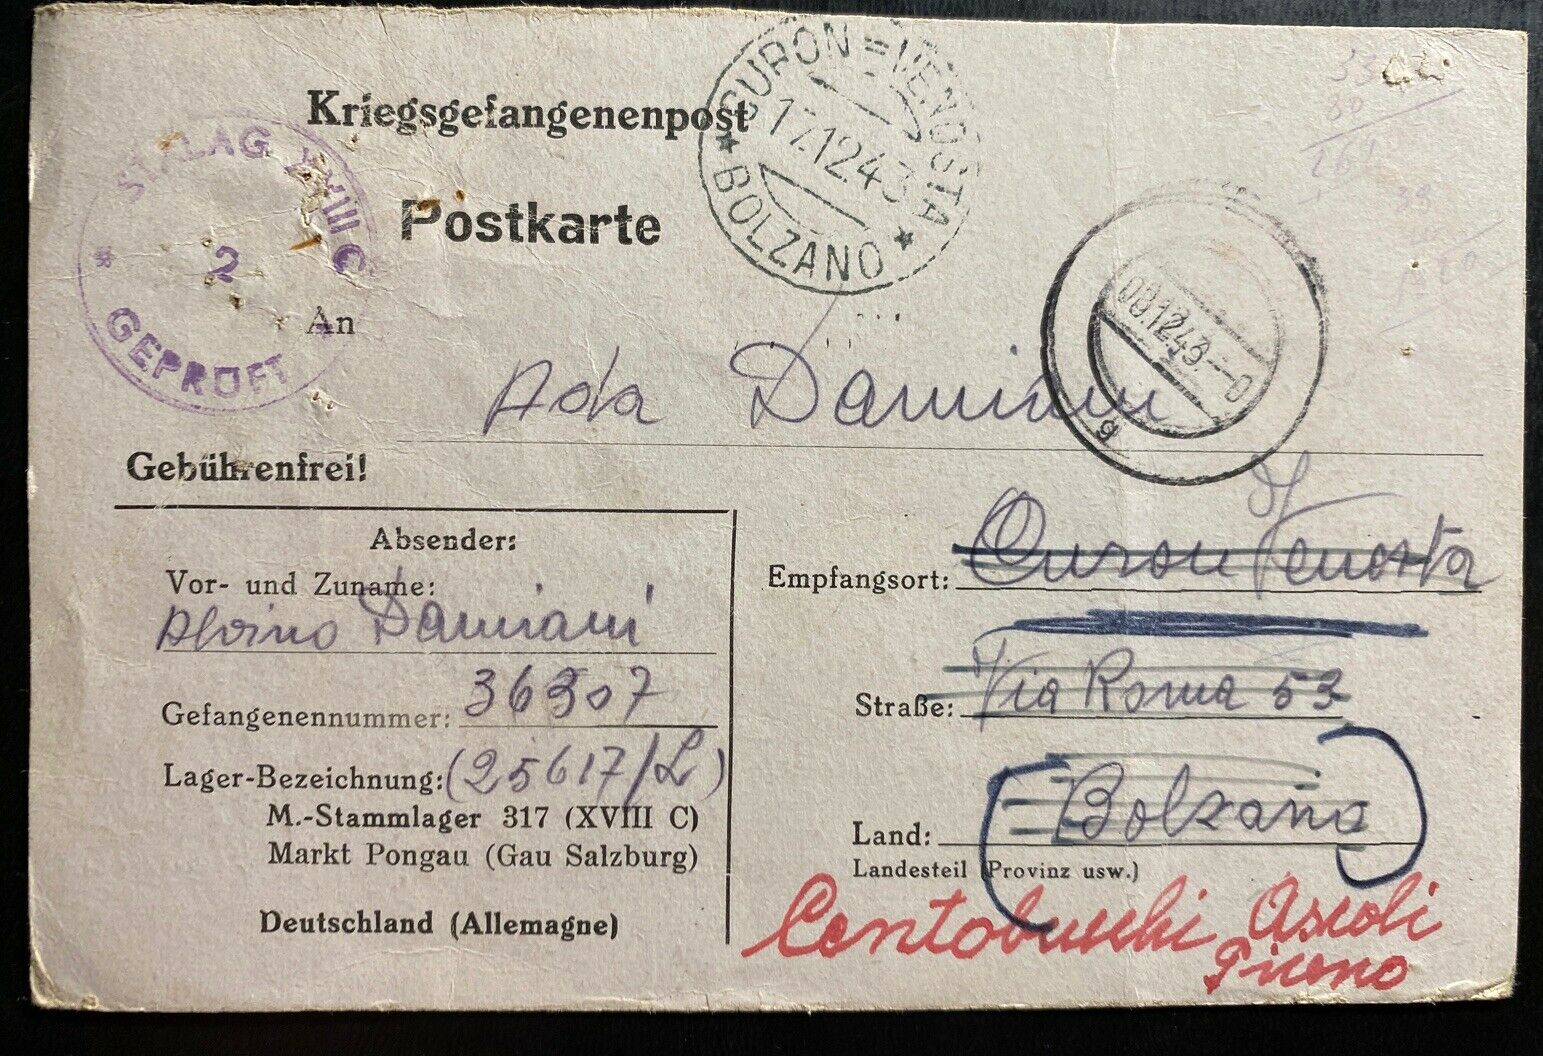 Kriegsgefangenenpost
CURON=VENOSTA
17.12.43
★ BOLZANO ★
STALAG XVIII C
2
GEPRÜFT
Postkarte
08.12.43.--0
An
Ada Damiani
Gebührenfrei!
Absender:
Vor- und Zuname:
Albino Damiani
Gefangenennummer: 36307
Lager-Bezeichnung: (25617/L)
M.-Stammlager 317 (XVIII C)
Markt Pongau (Gau Salzburg)
Deutschland (Allemagne)
Empfangsort: Curon Venosta
Straße: Via Roma 53
Land: Bolzano
Landesteil (Provinz usw.)
Centobuchi Ascoli
Piceno